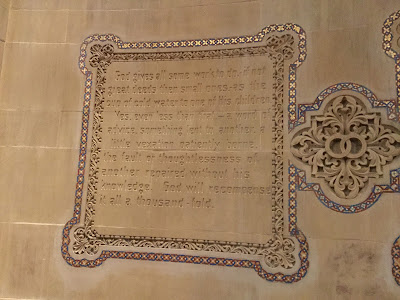 God gives all some work to do. If not
great deeds then small ones - as the
cup of cold water to one of his children.
Yes, even less than that - a word of
advice, something lent to another, a
little vexation patiently borne,
the fault or thoughtlessness of
another repaired without his
knowledge. God will recompense
it all a thousand-fold.